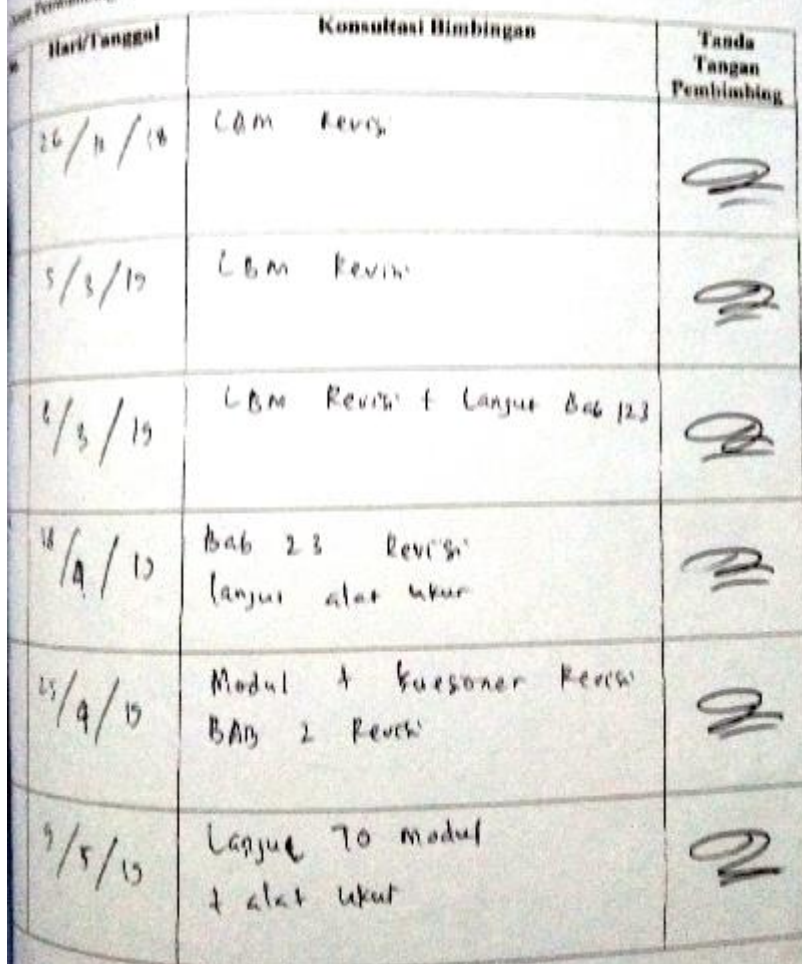 Hari/Tanggal
Konsultasi Bimbingan
Tanda
Tangan
Pembimbing
26/11/18
LBM Revisi
5/3/19
LBM Revisi
8/3/19
LBM Revisi + Lanjut Bab 123
18/4/19
Bab 23 Revisi
lanjut alat ukur
25/4/19
Modul + kuesoner Revisi
BAB 2 Revisi
9/5/19
Lanjut TO modul
+ alat ukur